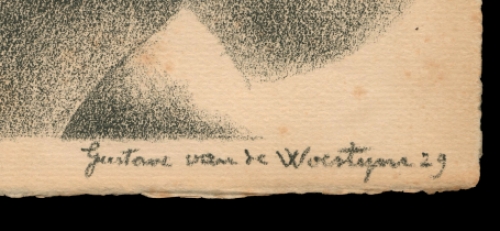 Gustave van de Woestyne 29